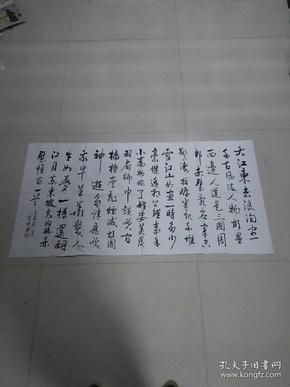 大江東去浪淘盡
千古風流人物故壘
西邊人道是三國周
郎赤壁亂石
雪江山如畫一時多少
豪傑遙想公瑾當年
小喬初嫁了雄姿英發
羽扇綸巾談笑間
檣櫓灰飛煙滅故國
神遊多情應笑
我早生華髮人
生如夢一樽還酹
江月蘇東坡
懷古
孔夫子旧书网